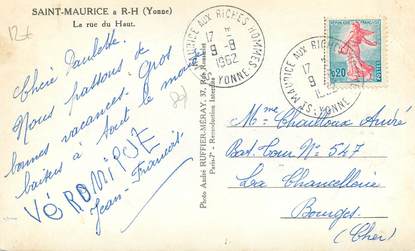 SAINT-MAURICE a R-H (Yonne)
La rue du Haut.
12€
Chère Paulette.
Nous passons de
bonnes vacances. Gros
baisers à tout le monde
Jean-François
VÉRONIQUE
Photo André RUFFIER-MÉRAY, 37, rue
Paris-7e - Reproduction
ST MAURICE AUX RICHES HOMMES
17
9-8
1962
YONNE
ST MAURICE AUX RICHES
17
9
YONNE
0,20
POSTES
Mme Chailloux André
Post. Tour No 547
La Chancellerie
Bourges
(Cher)